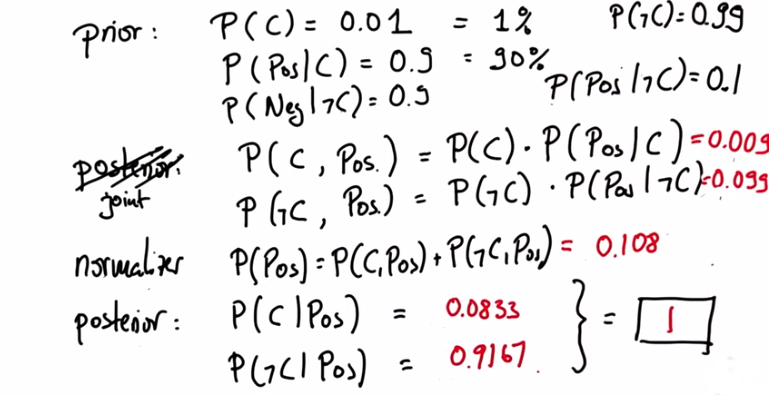 prior: P(C) = 0.01 = 1% P(¬C) = 0.99
P(Pos|C) = 0.9 = 90% P(Pos|¬C) = 0.1
P(Neg|¬C) = 0.9
posterior: P(C, Pos.) = P(C) · P(Pos|C) = 0.009
joint P(¬C, Pos.) = P(¬C) · P(Pos|¬C) = 0.099
normalizer P(Pos) = P(C,Pos) + P(¬C,Pos) = 0.108
posterior: P(C|Pos) = 0.0833 = 1
P(¬C|Pos) = 0.9167